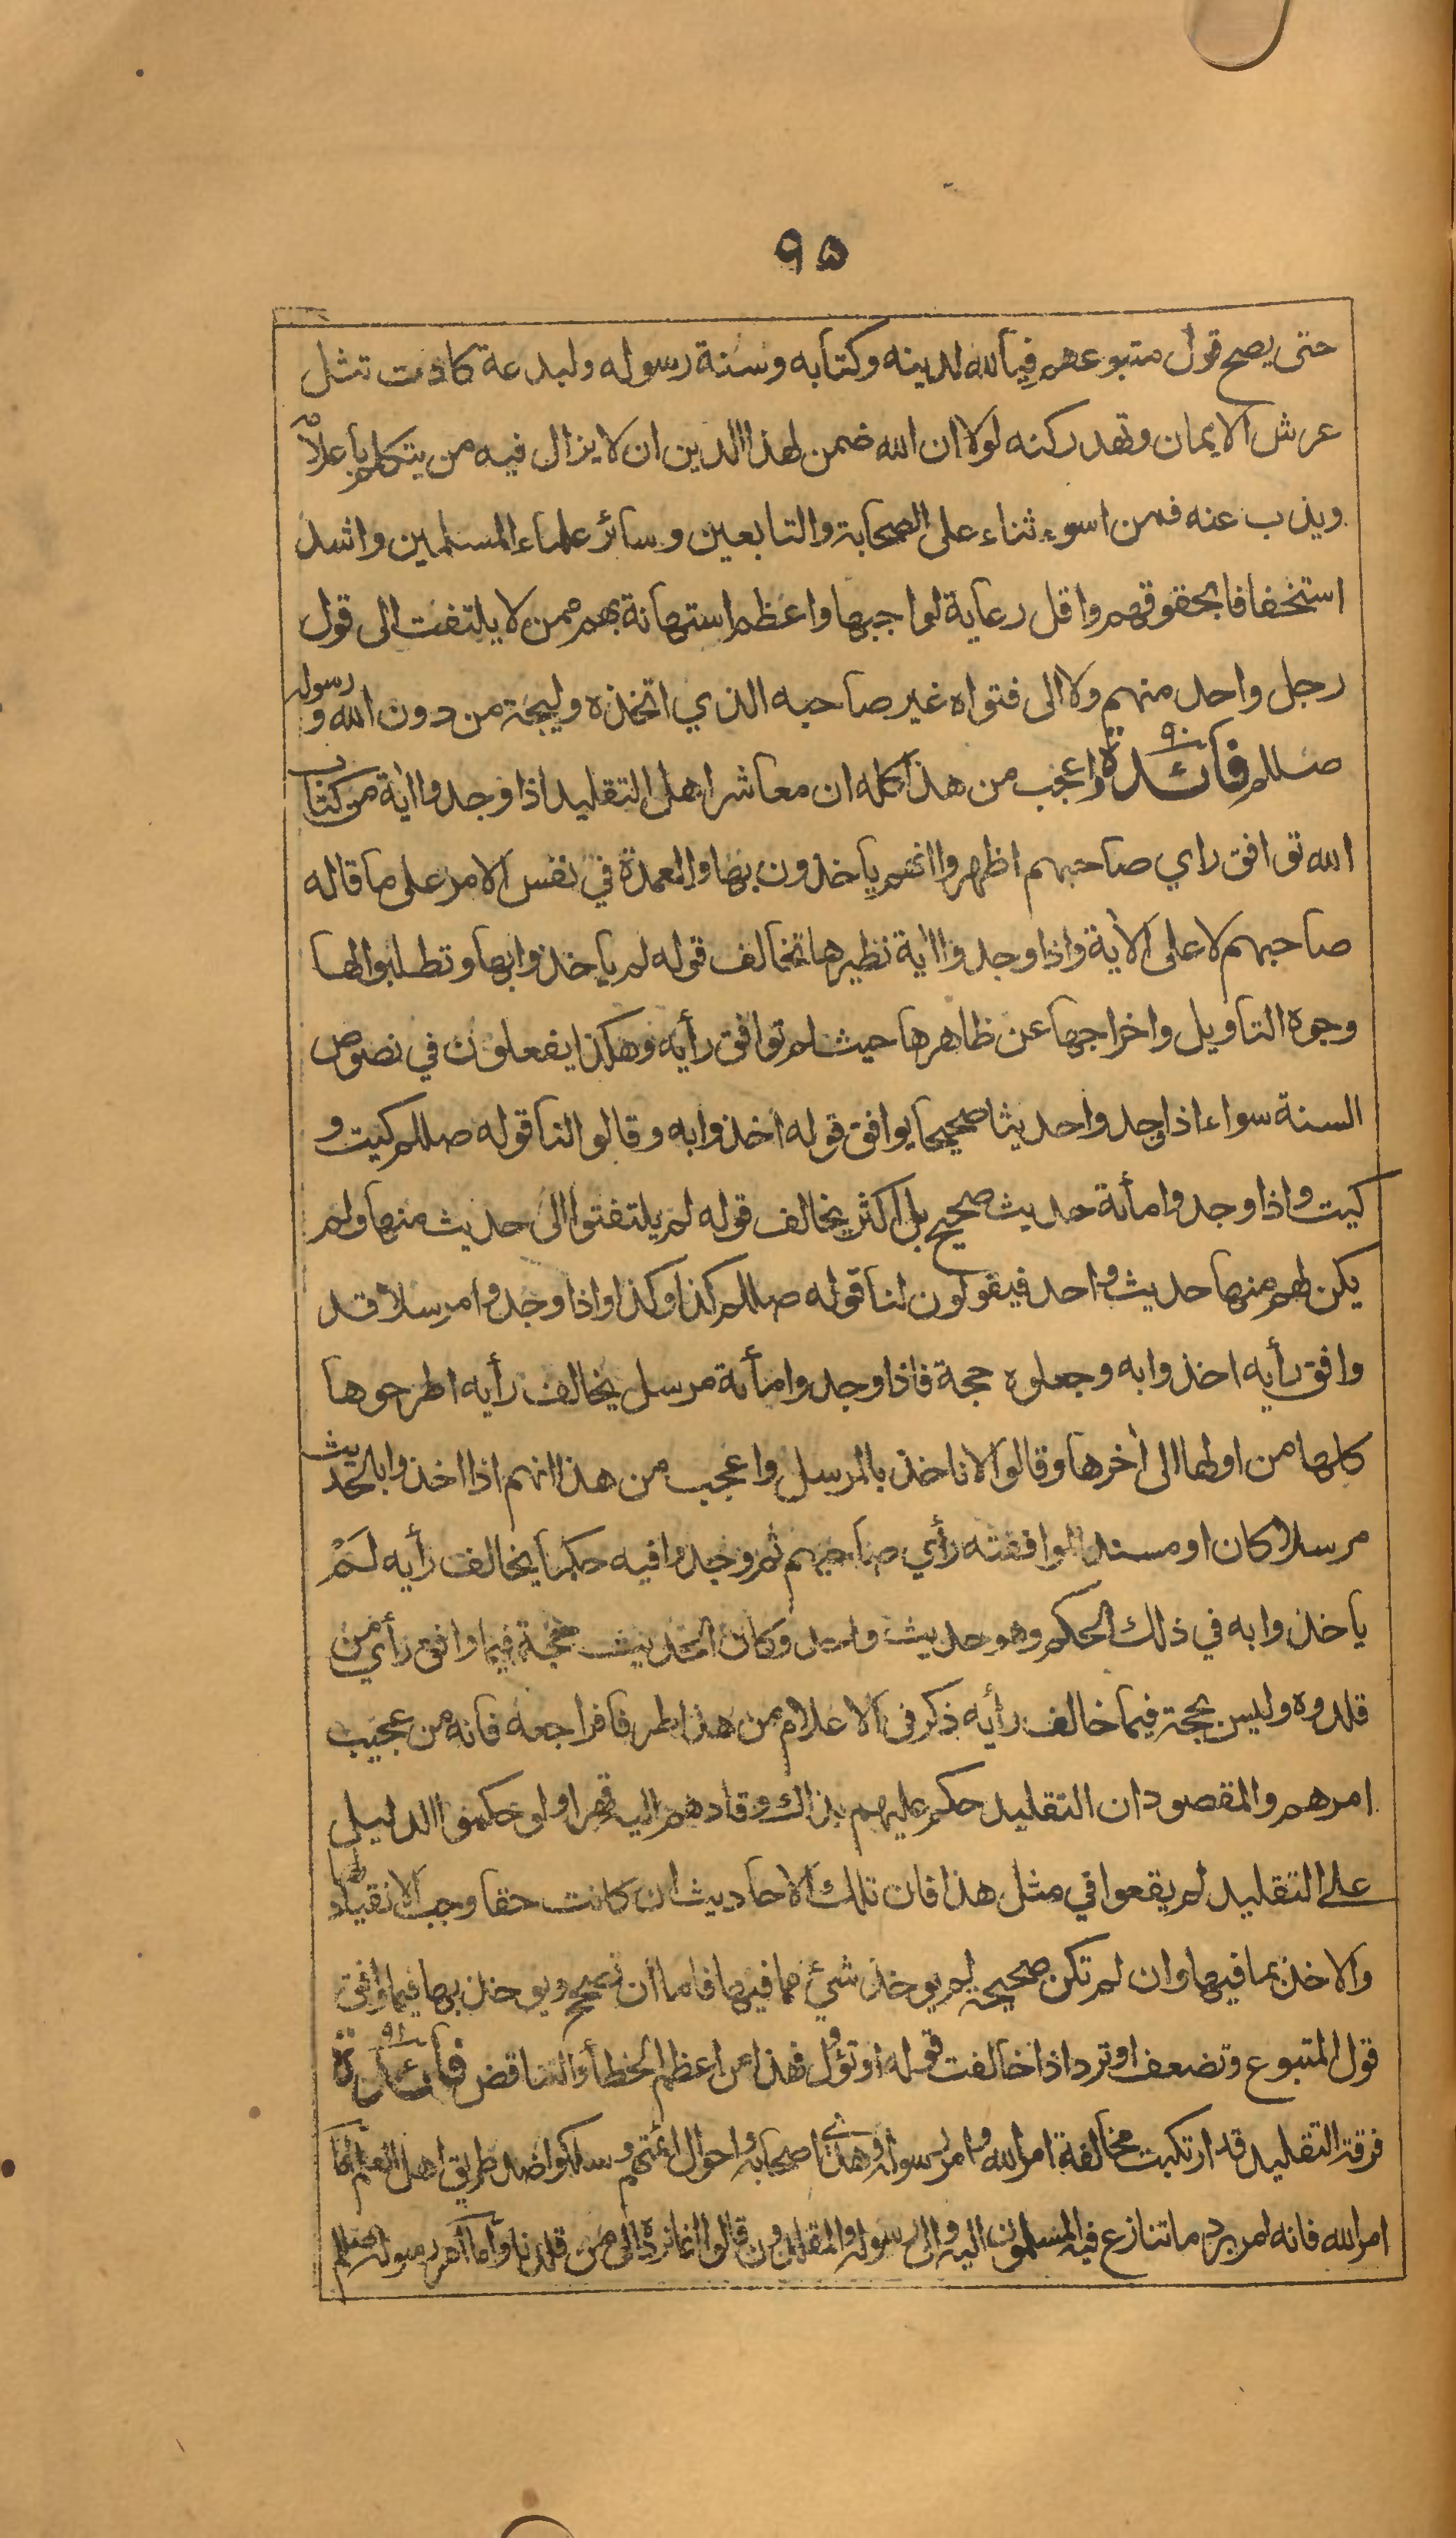 ٩٥
حتى يصح قول متبوعهم فيالله لدينه وكتابه وسنة رسوله ولبدعة كادت تثل
عرش الايمان وتهد ركنه لولا ان الله ضمن لهذا الدين ان لا يزال فيه من يتكلم باعلامه
ويذب عنه فمن اسوء ثناء على الصحابة والتابعين وسائر علماء المسلمين واشد
استخفافا بحقوقهم واقل رعاية لواجبها واعظم استهانة بهم ممن لا يلتفت الى قول
رجل واحد منهم ولا الى فتواه غير صاحبه الذي اتخذه وليجة من دون الله و رسوله
صللم فائدة ٩٠ واعجب من هذا كله ان معاشر اهل التقليد اذا وجدوا اية من كتاب
الله توافق راي صاحبهم اظهروا انهم ياخذون بها والعمدة في نفس الامر على ما قاله
صاحبهم لا على الاية واذا وجدوا اية نظيرها تخالف قوله لم ياخذوا بها وتطلبوا لها
وجوه التاويل واخراجها عن ظاهرها حيث لم توافق رأيه وهكذا يفعلون في نصوص
السنة سواء اذا وجدوا حديثا صحيحا يوافق قوله اخذوا به وقالوا لنا قوله صللم كيت و
كيت واذا وجدوا مأة حديث صحيح بل اكثر يخالف قوله لم يلتفتوا الى حديث منها ولم
يكن لهم منها حديث واحد فيقولون لنا قوله صللم كذا وكذا واذا وجدوا مرسلا قد
وافق رأيه اخذوا به وجعلوه حجة فاذا وجدوا مأة مرسل يخالف رأيه اطرحوها
كلها من اولها الى أخرها وقالوا لا ناخذ بالمرسل واعجب من هذا انهم اذا اخذوا بالحديث
مرسلا كان او مسندا لموافقته رأي صاحبهم ثم وجدوا فيه حكما يخالف رأيه لم
ياخذوا به في ذلك الحكم وهو حديث واحد وكان الحديث حجة فيما وافق رأي من
قلدوه وليس بحجة فيما خالف رأيه ذكر في الاعلام من هذا طرفا فراجعه فانه من عجيب
امرهم والمقصود ان التقليد حكم عليهم بذاك وقادهم اليه قهرا ولو حكموا الدليل
على التقليد لم يقعوا في مثل هذا فان تلك الاحاديث ان كانت حقا وجب الانقياد لها
والاخذ بما فيها وان لم تكن صحيحة لم يوخذ شئ مما فيها فاما ان تصحح ويوخذ بها فيما وافق
قول المتبوع وتضعف او ترد اذا خالفت قوله او تؤل فهذا من اعظم الخطأ والتناقض فائدة ٩١
فرقة التقليد قد ارتكبت مخالفة امر الله وامر رسوله وهدي اصحابه واحوال ائمتهم وسلكوا ضد طريق اهل العلم اما
امر الله فانه امر برد ما تنازع فيه المسلمون اليه والى رسوله والمقلدون قالوا انما نرده الى من قلدنا واما امر رسوله صللم